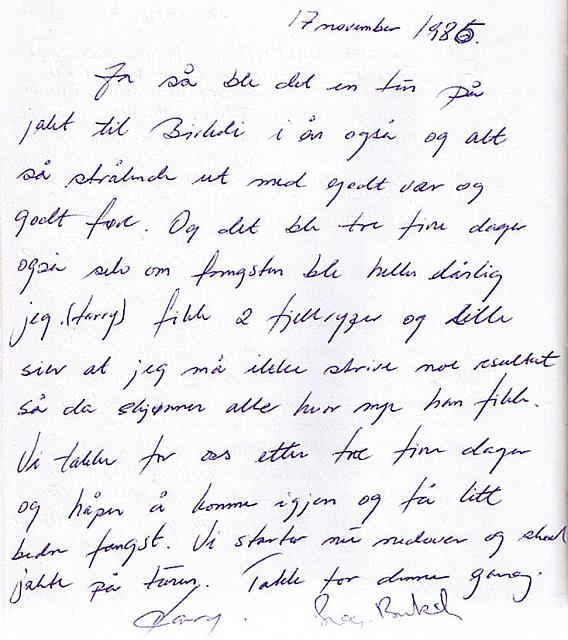 17 november 1985.
Ja så ble det en tur på
jakt til Birkeli i år også og alt
så strålende ut med godt vær og
godt føre. Og det ble tre fine dager
også selv om fangsten ble heller dårlig
jeg. (Harry) fikk 2 fjellryper og
sier at jeg må ikke skrive noe resultat
så da skjønner alle hvor mye han fikk.
Vi takker for oss etter tre fine dager
og håper å komme igjen og få litt
bedre fangst. Vi starter nå nedover og skal
jakte på turen. Takk for denne gang.
Harry.